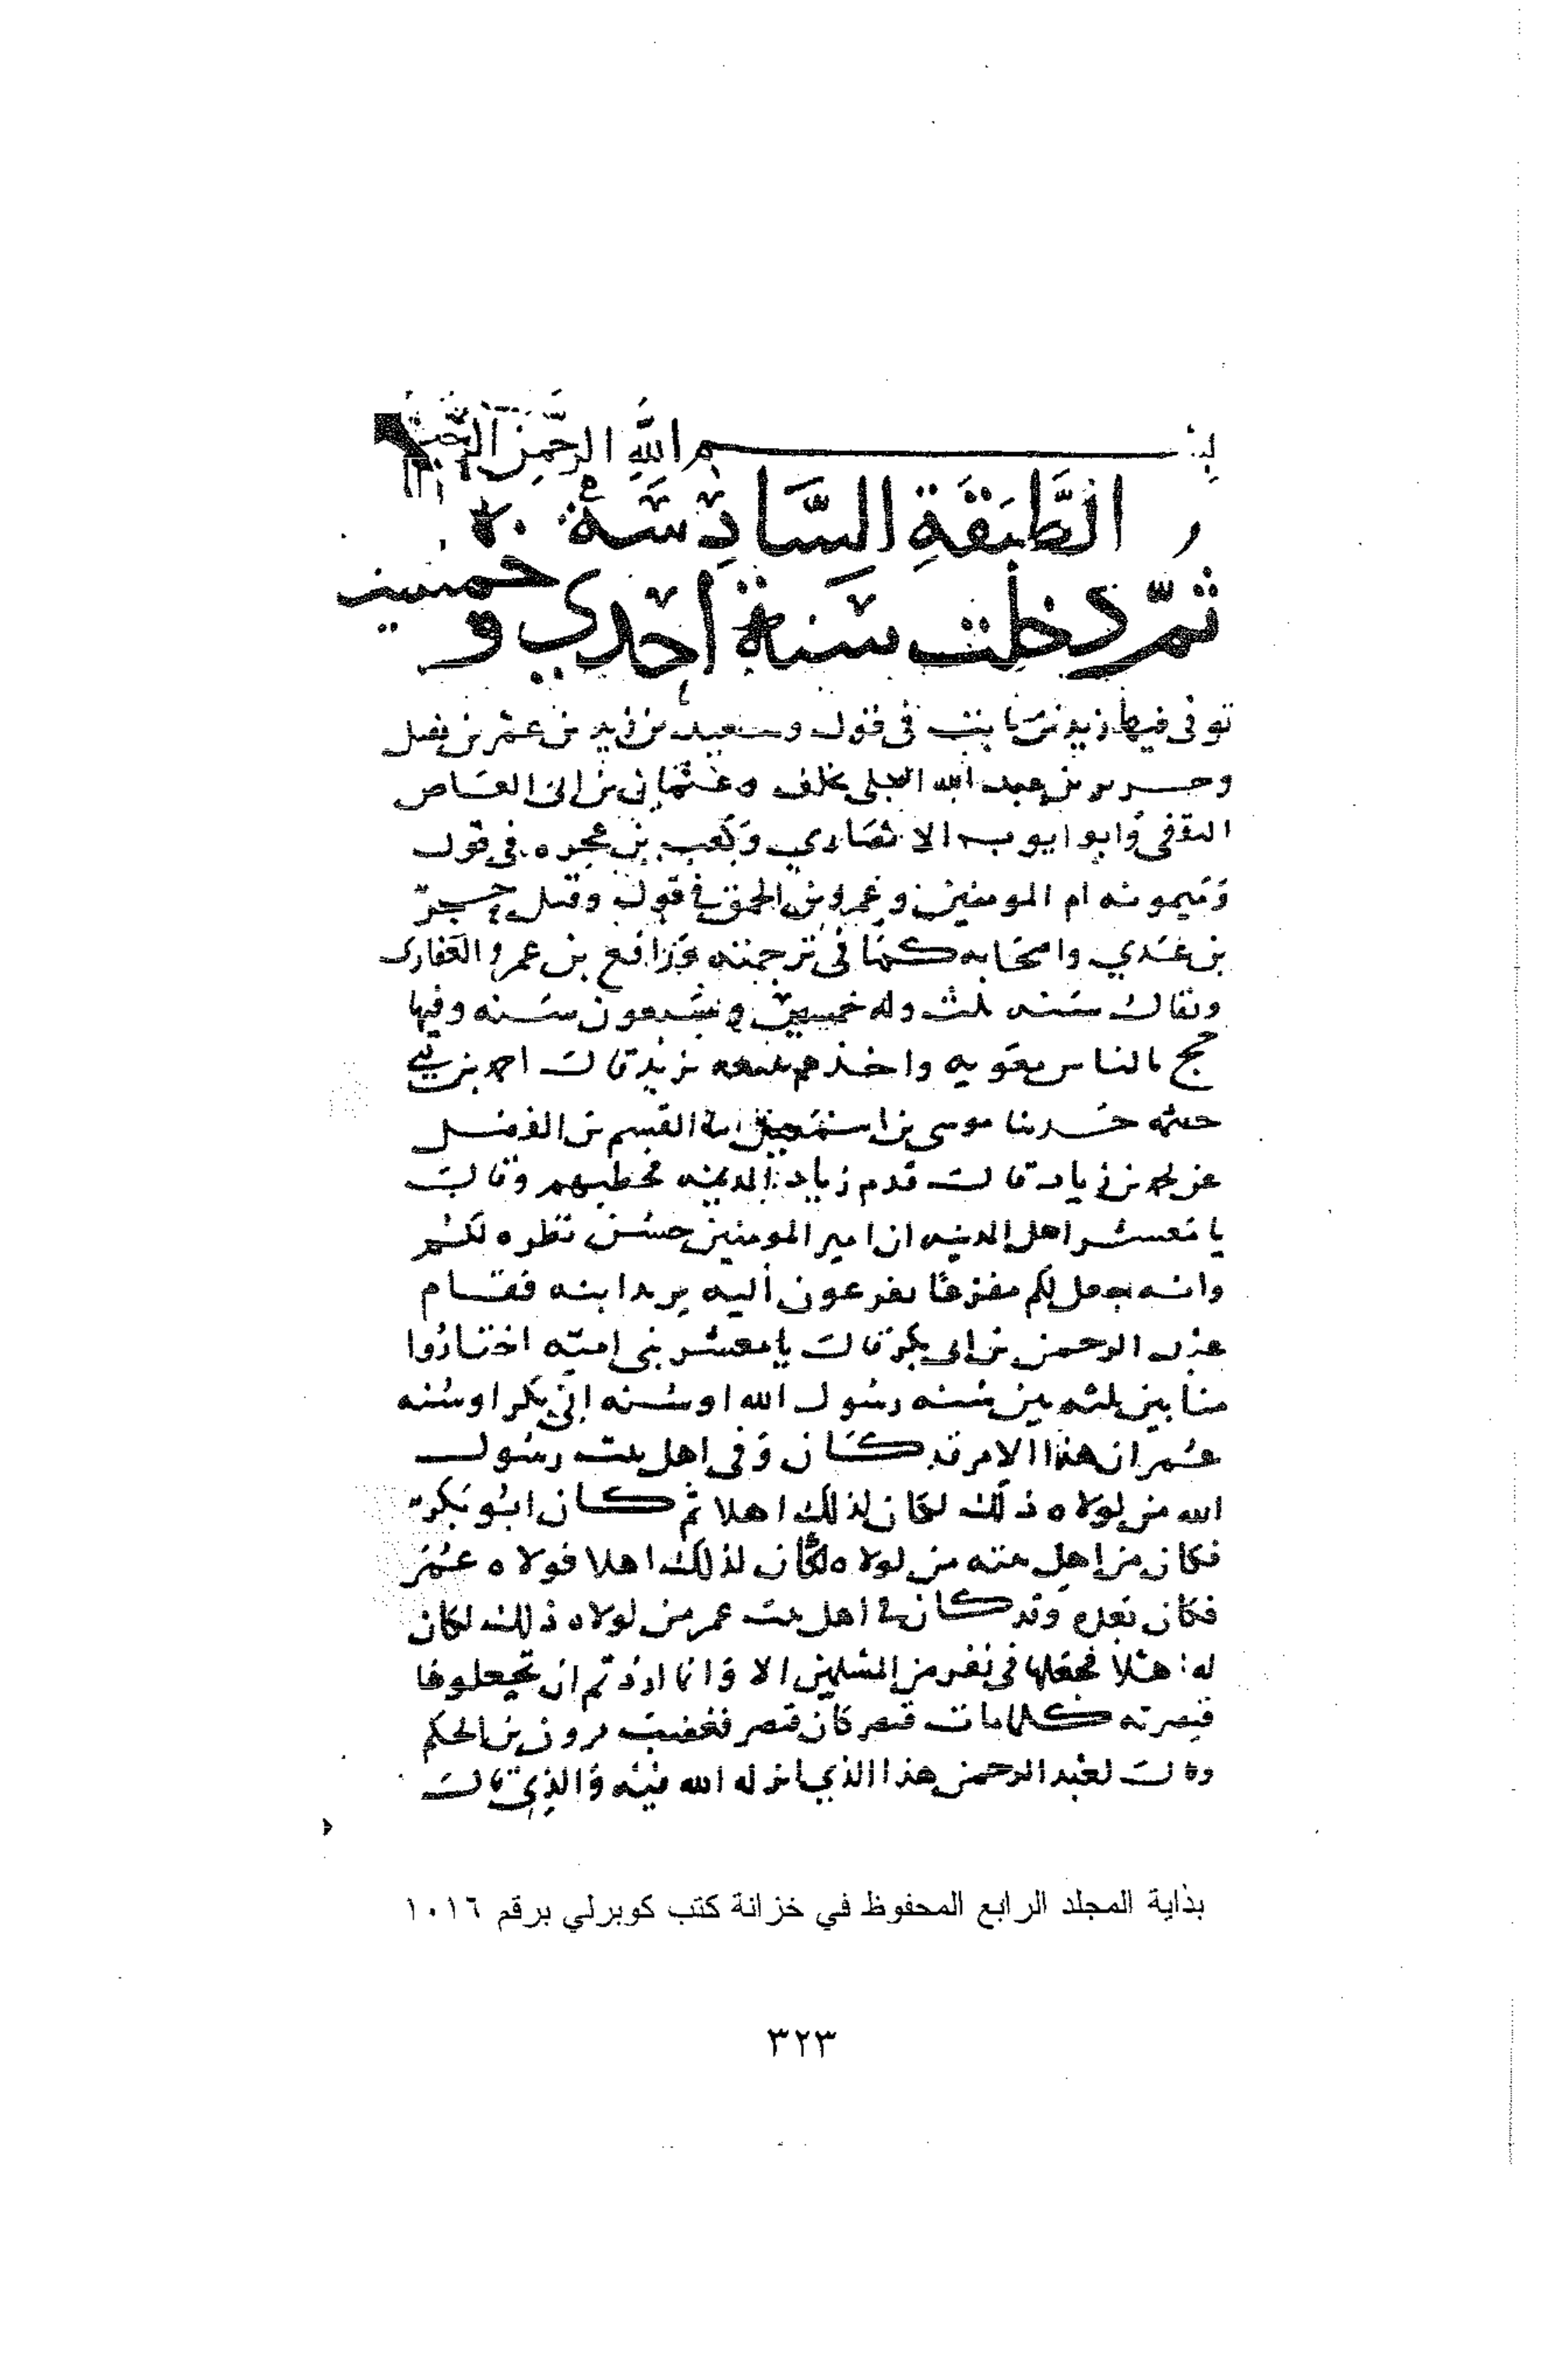 بسم الله الرحمن الرحيم
الطَّبَقَةِ السَّادِسَة
ثمّ دخلت سنة احدي و خمسين
توفى فيها زيد بن ثابت في قول وسعيد بن زيد بن عمرو بن نفيل
وجرير بن عبد الله البجلى بخلف وعثمان بن ابى العاص
الثقفى وابو ايوب الانصاري وكعب بن عجره في قول
وميمونه ام المومنين وعمرو بن الحمق في قول وقتل حجر
بن عدي واصحابه كما فى ترجمته ورافع بن عمرو الغفارى
ويقال سنه ثلث وله خمس وسبعون سنه وفيها
حج بالناس معويه واخذهم ببيعه يزيد قال احمد بن ابي
خيثمه حدثنا موسى بن اسمعيل ثنا القسم بن الفضل
عن محمد بن زياد قال قدم زياد المدينه فخطبهم وقال
يا معشر اهل المدينه ان امير المومنين حسن نظره لكم
وانه جعل لكم مفزعا تفزعون اليه يزيد ابنه فقام
عبد الرحمن بن ابى بكر قال يا معشر بنى اميّه اختاروا
منا بين ثلثه بين سنه رسول الله او سنه ابى بكر او سنه
عمر ان هذا الامر قد كان وفى اهل بيت رسول
الله من لو ولاه ذلك لكان لذلك اهلا ثم كان ابو بكر
فكان من اهل بيته من لو ولاه لكان لذلك اهلا فولاه عمر
فكان بعده وقد كان في اهل بيت عمر من لو ولاه ذلك لكان
له اهلا فجعلها في نفر من المسلمين الا وانما اردتم ان تجعلوها
قيصريه كلما مات قيصر كان قيصر فغضب مرون بن الحكم
وقال لعبد الرحمن هذا الذي انزل الله فيه والذي قال
بداية المجلد الرابع المحفوظ في خزانة كتب كوبرلي برقم ١٠١٦
٣٢٣